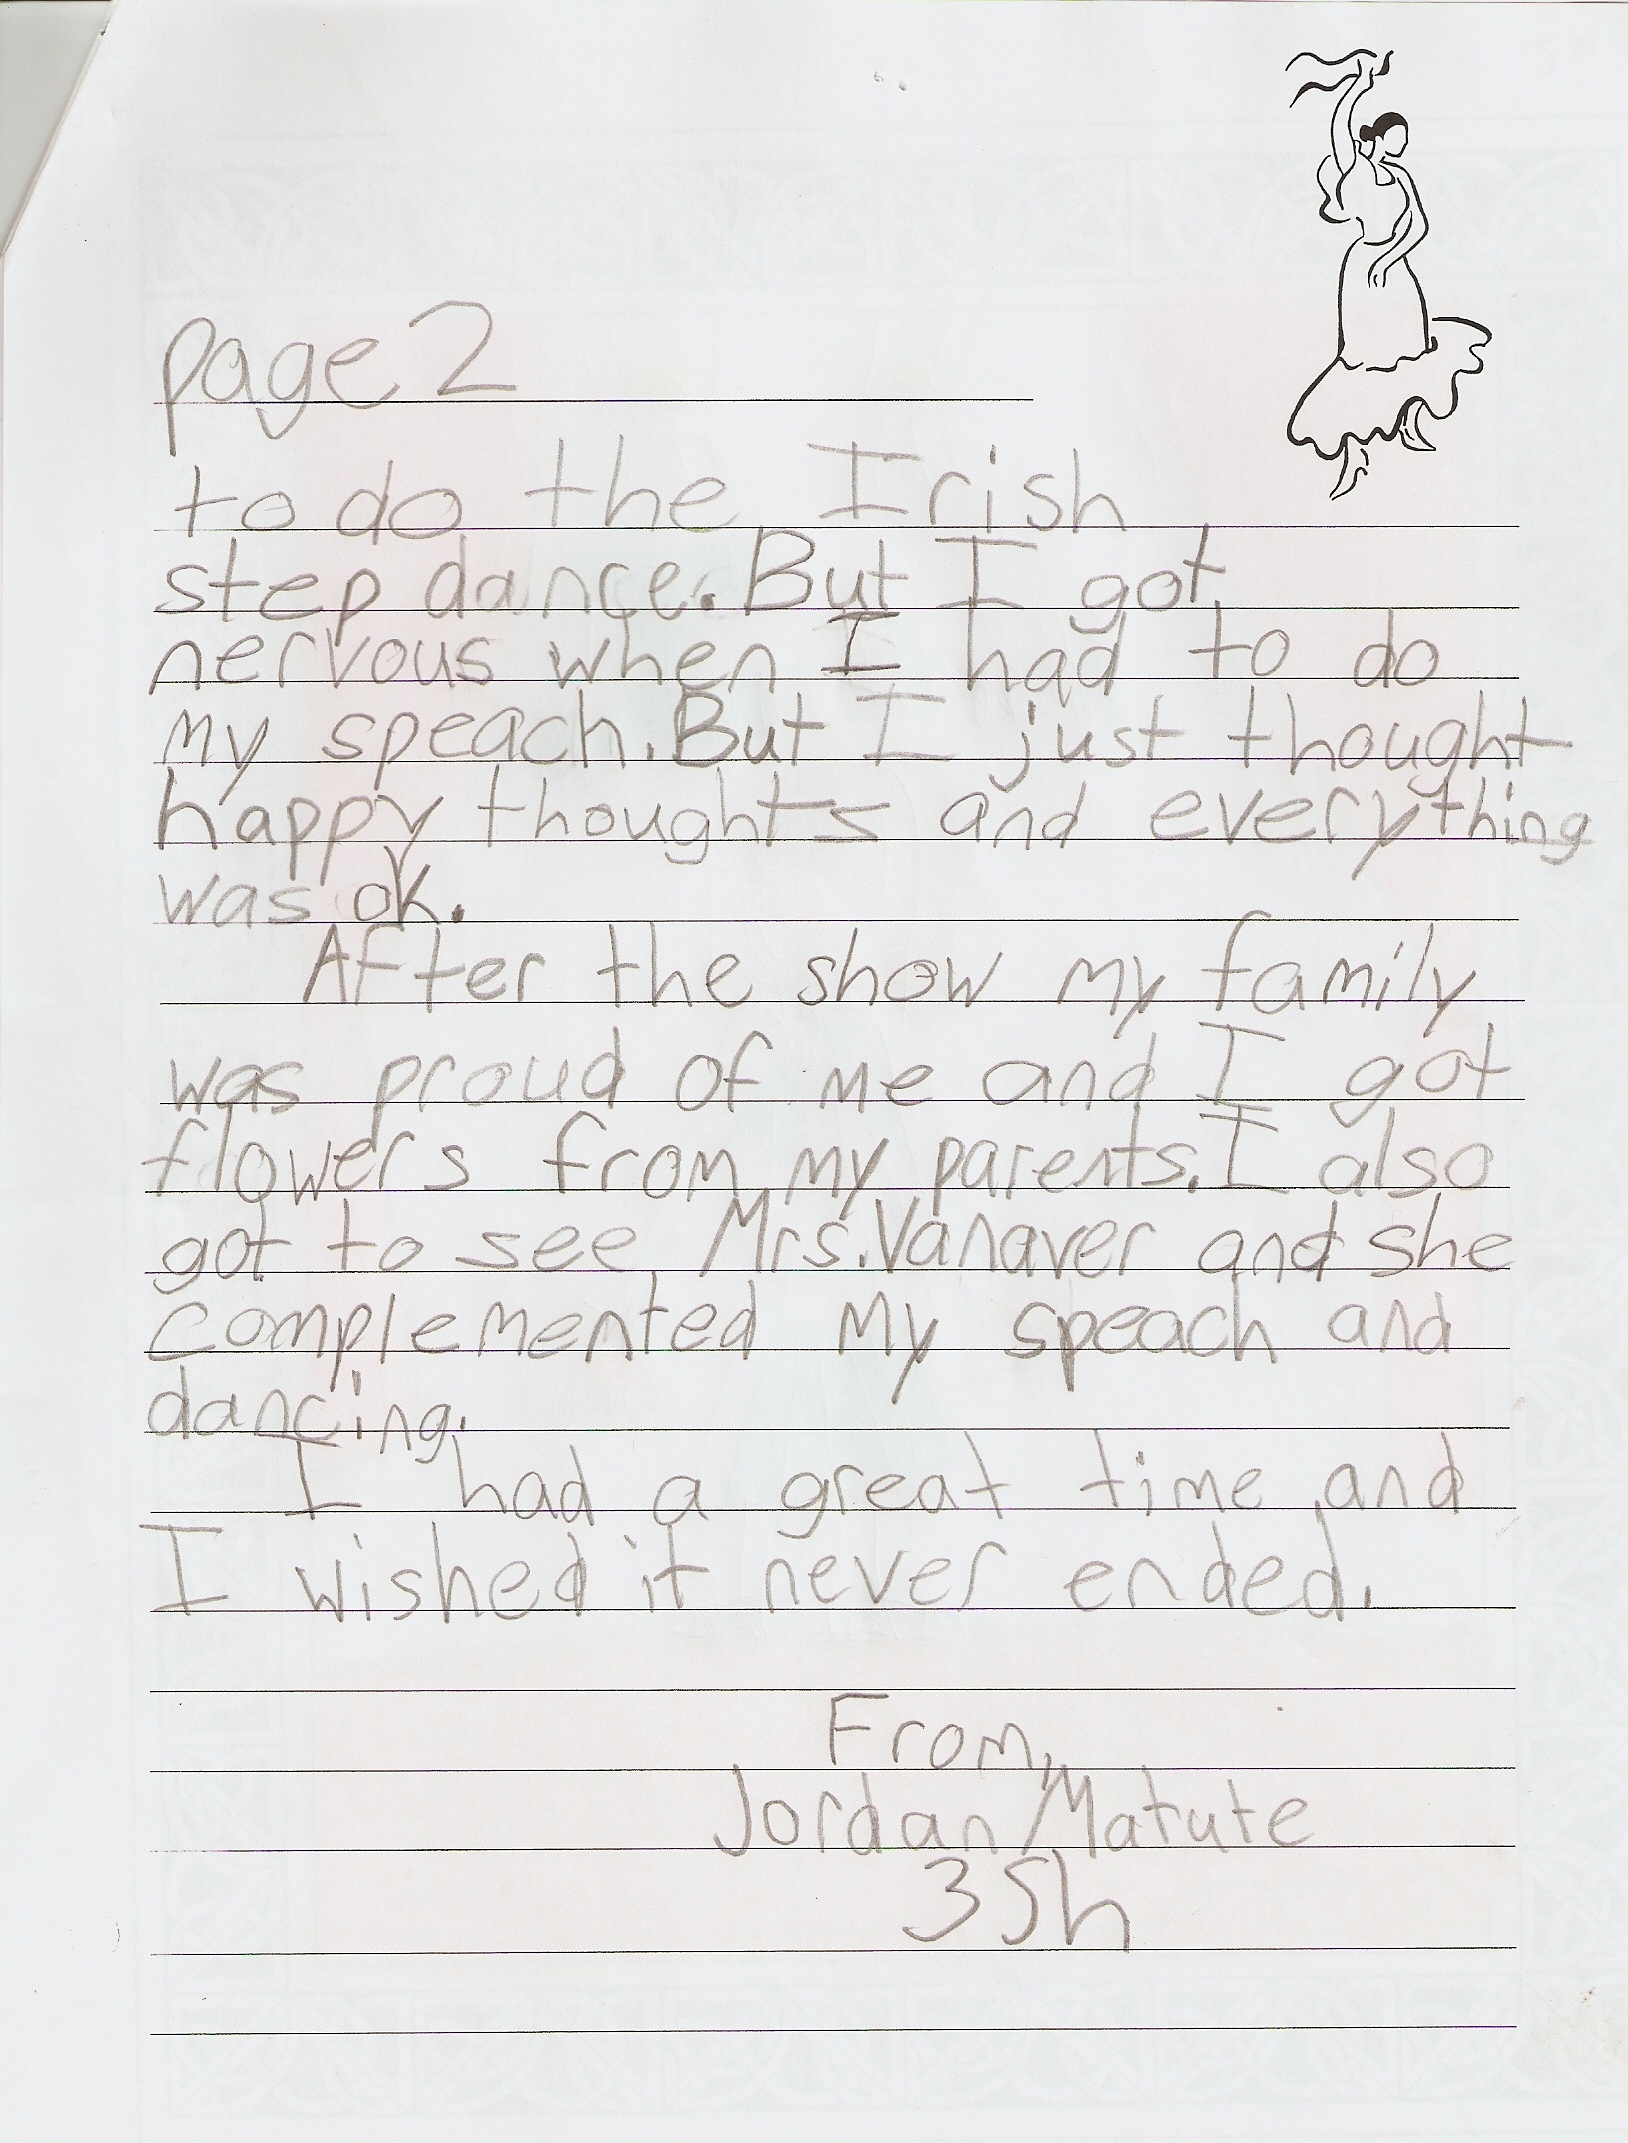 page 2
to do the Irish
step dance. But I got
nervous when I had to do
my speach. But I just thought
happy thoughts and everything
was ok.
After the show my family
was proud of me and I got
flowers from my parents. I also
got to see Mrs. Vanaver and she
complemented my speach and
dancing.
I had a great time and
I wished it never ended.
From,
Jordan Matute
3Sh